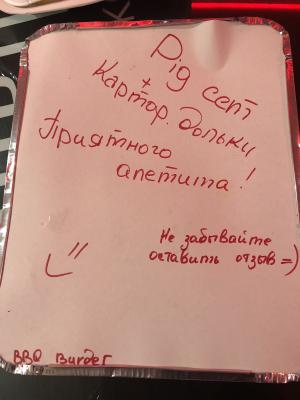 Pig сет
+
Картор. дольки
Приятного
апетита!
Не забывайте
оставить отзыв =)
BBQ Burger